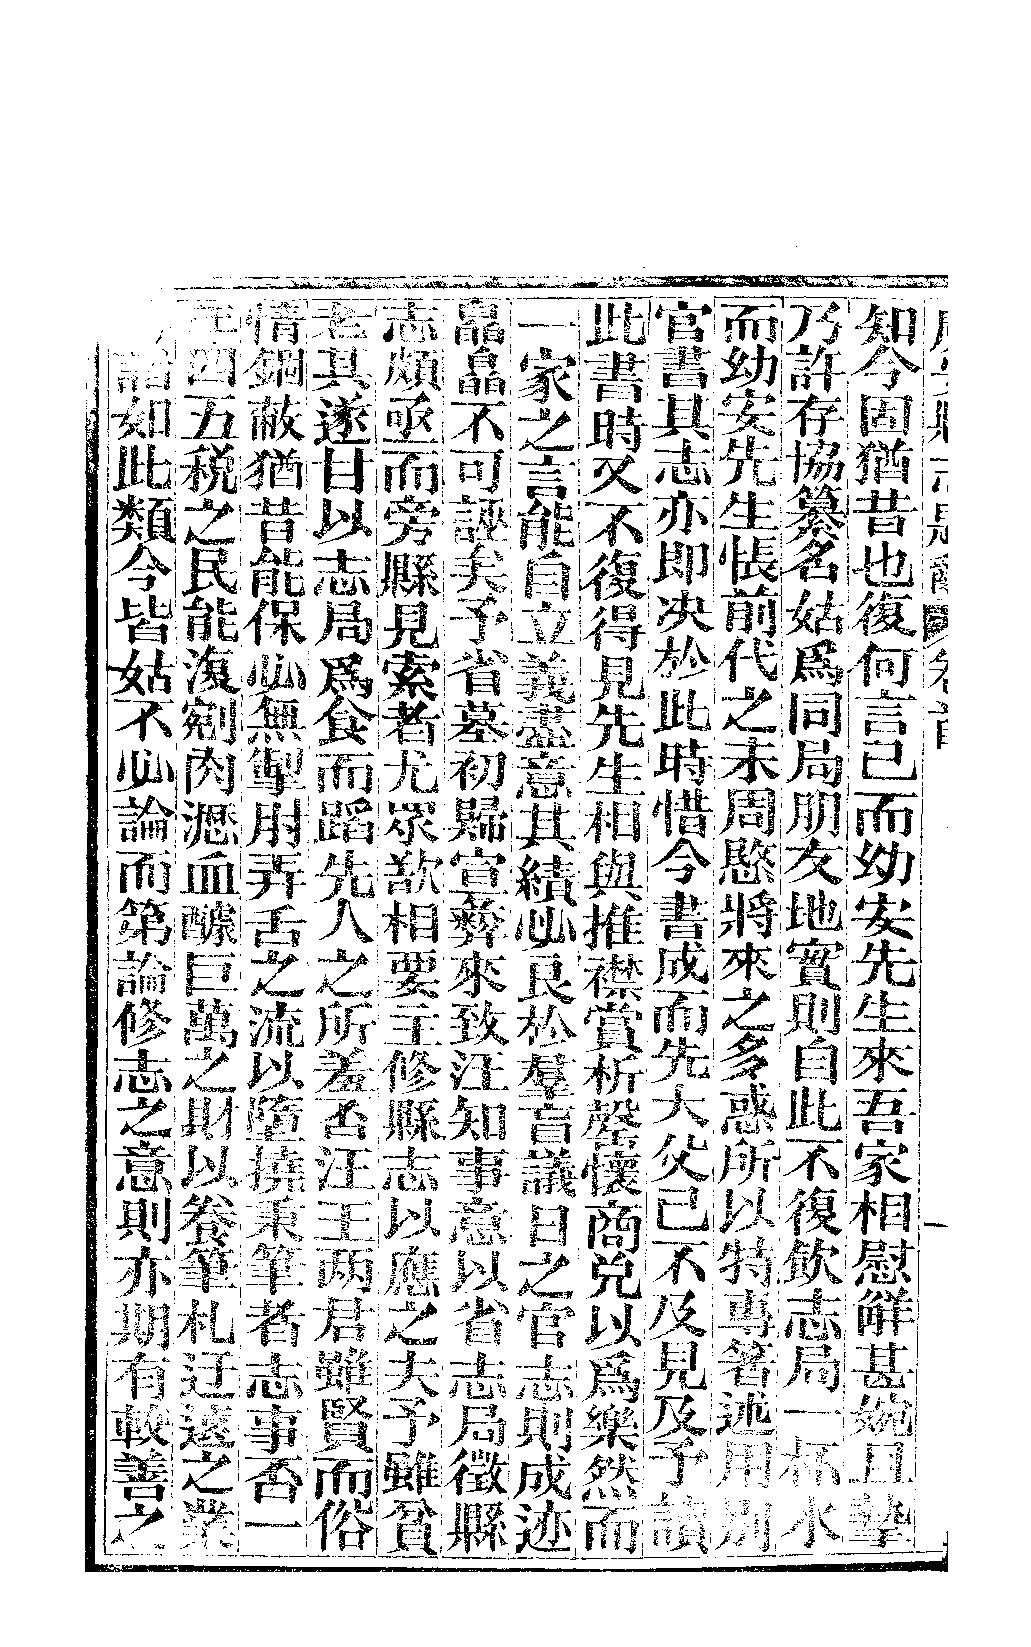 志 卷首
知今固猶昔也復何言已而幼安先生來吾家相慰解甚婉且摯
乃許存協纂名姑爲同局朋友地實則自此不復飲志局一杯水
而幼安先生悵前代之未周愍將來之多惑所以特專箸述用別
官書其志亦即決於此時惜今書成而先大父已不及見及予讀
此書時又不復得見先生相與推襟賞析罄懷商兌以爲樂然而
一家之言能自立義盡意其績必良於羣盲議日之官志則成迹
皛皛不可誣矣予省墓初歸宣彝來致汪知事意以省志局徵縣
志頗亟而旁縣見索者尤眾歆相要主修縣志以應之夫予雖貧
老其遂甘以志局爲食而蹈先人之所羞否汪王两君雖賢而俗
情錮蔽猶昔能保必無掣肘弄舌之流以墮撓秉筆者志事否一
在四五稅之民能復剜肉瀝血醵巨萬之財以養筆札迂遠之業
詒如此類今皆姑不必論而第論修志之意則亦期有較善之